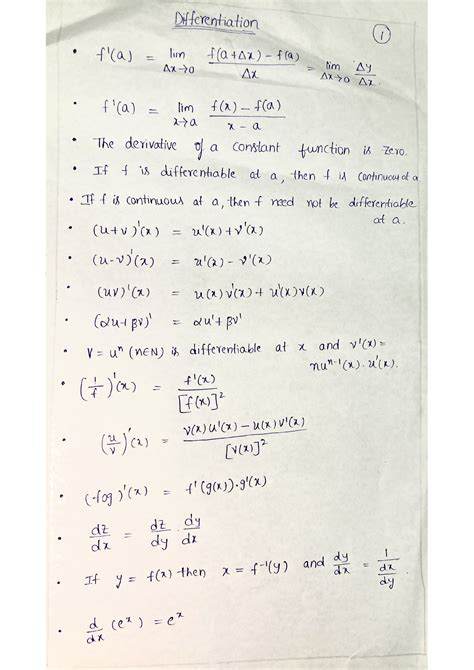 Differentiation
1
• f'(a) = lim Δx→0 f(a+Δx) - f(a) / Δx = lim Δx→0 Δy / Δx
• f'(a) = lim x→a f(x) - f(a) / x - a
• The derivative of a constant function is zero.
• If f is differentiable at a, then f is continuous at a
• If f is continuous at a, then f need not be differentiable
at a.
• (u+v)'(x) = u'(x) + v'(x)
• (u-v)'(x) = u'(x) - v'(x)
• (uv)'(x) = u(x) v'(x) + u'(x) v(x)
• (αu+βv)' = αu' + βv'
• V = uⁿ (n∈N) is differentiable at x and v'(x) =
nuⁿ⁻¹(x). u'(x).
• (1/f)'(x) = f'(x) / [f(x)]²
• (u/v)'(x) = v(x) u'(x) - u(x) v'(x) / [v(x)]²
• (fog)'(x) = f'(g(x)).g'(x)
• dz/dx = dz/dy . dy/dx
• If y = f(x) then x = f⁻¹(y) and dy/dx = 1 / dx/dy.
• d/dx (eˣ) = eˣ